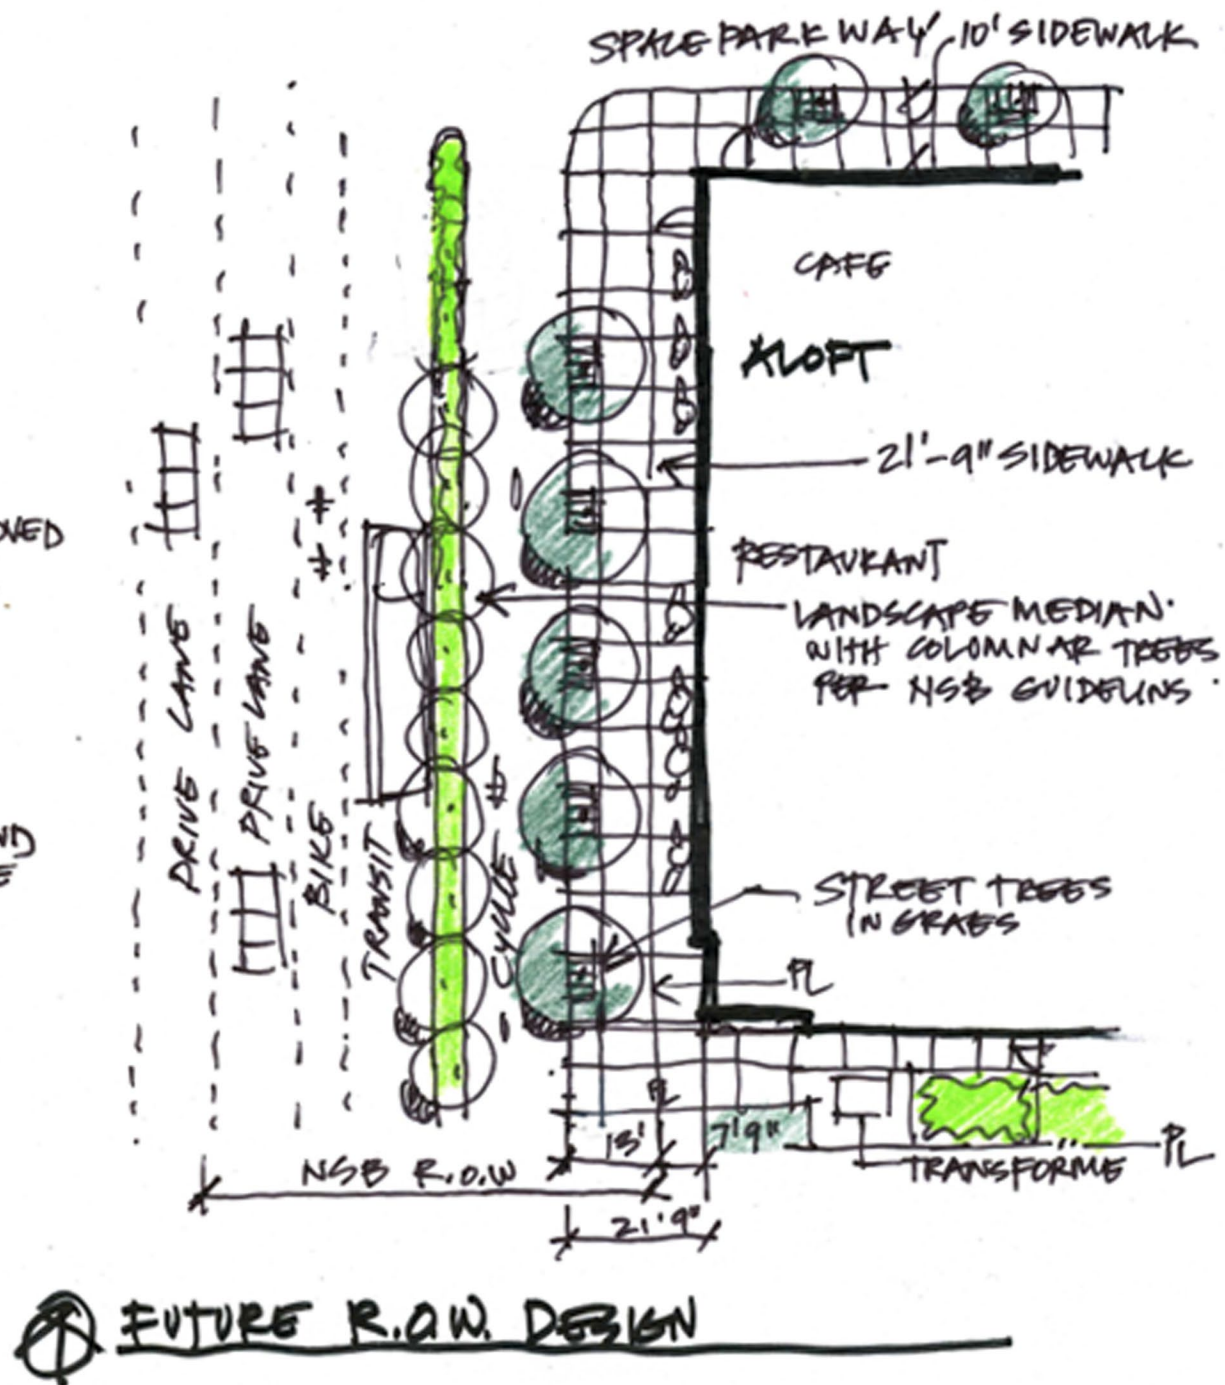 SPACE PARK WAY 10' SIDEWALK
CAFE
ALOFT
21'-9" SIDEWALK
RESTAURANT
LANDSCAPE MEDIAN
WITH COLOMNAR TREES
PER NSB GUIDELINS.
STREET TREES
IN GRAES
PL
DRIVE LANE
DRIVE LANE
BIKE
TRANSIT
CYCLE
PL
13'
7'9"
TRANSFORME
PL
NSB R.O.W
21'9"
FUTURE R.O.W. DESIGN